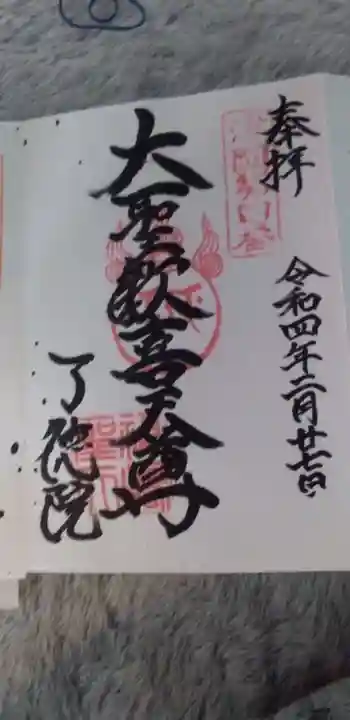 奉拝
令和四年二月廿七日
大聖歓喜天尊
了徳院